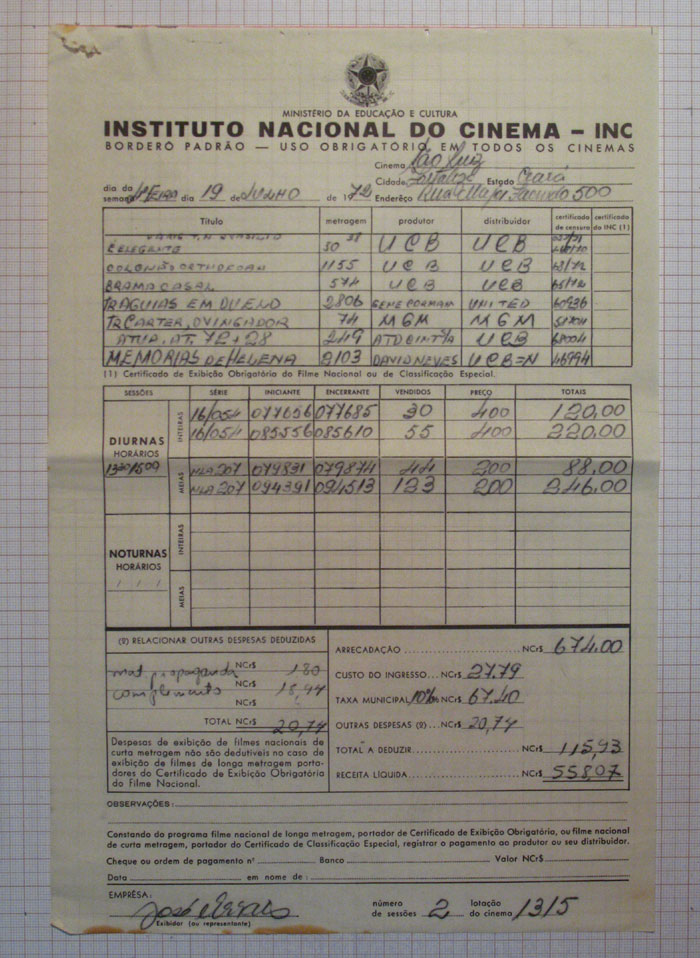 MINISTÉRIO DA EDUCAÇÃO E CULTURA
INSTITUTO NACIONAL DO CINEMA – INC
BORDERÔ PADRÃO — USO OBRIGATÓRIO EM TODOS OS CINEMAS
Cinema São Luiz
Cidade Fortaleza Estado Ceará
dia da semana 4ª EIRA dia 19 de JULHO de 1972 Endereço Rua Major Facundo 500
Título metragem produtor distribuidor certificado de censura certificado do INC (1)
50 UCB UCB
1155 UCB UCB 63/72
BRAMA CASAL 574 UCB UCB 65/72
TRAGUIAS EM DUELO 2806 GENE CORMAN UNITED 60936
TR CARTER, O VINGADOR 74 MGM MGM
ATUA. AT. 72+28 249 UCB
MEMORIAS DE HELENA 2103 DAVID NEVES UCB=N 46994
(1) Certificado de Exibição Obrigatória do Filme Nacional ou de Classificação Especial.
SESSÕES SÉRIE INICIANTE ENCERRANTE VENDIDOS PREÇO TOTAIS
DIURNAS
HORÁRIOS
INTEIRAS 16/054 077656 077685 30 400 120,00
16/054 085556 085610 55 400 220.00
1330/1500 MEIAS NLA 207 079831 079874 44 200 88.00
NLA 207 094391 094513 123 200 246.00
NOTURNAS
HORÁRIOS
INTEIRAS
MEIAS
(2) RELACIONAR OUTRAS DESPESAS DEDUZIDAS
mat propaganda NCr$ 1,80
complemento NCr$ 18,94
NCr$
TOTAL NCr$ 20,74
Despesas de exibição de filmes nacionais de
curta metragem não são dedutíveis no caso de
exibição de filmes de longa metragem porta-
dores do Certificado de Exibição Obrigatória
do Filme Nacional.
ARRECADAÇÃO NCr$ 674.00
CUSTO DO INGRESSO... NCr$ 27.79
TAXA MUNICIPAL 10% NCr$ 67.40
OUTRAS DESPESAS (2)... NCr$ 20,74
TOTAL A DEDUZIR NCr$ 115,93
RECEITA LÍQUIDA NCr$ 558,07
OBSERVAÇÕES:
Constando do programa filme nacional de longa metragem, portador de Certificado de Exibição Obrigatória, ou filme nacional
de curta metragem, portador do Certificado de Classificação Especial, registrar o pagamento ao produtor ou seu distribuidor.
Cheque ou ordem de pagamento nº Banco Valor NCr$
Data em nome de:
EMPRÊSA:
José
Exibidor (ou representante)
número de sessões 2 lotação do cinema 1315